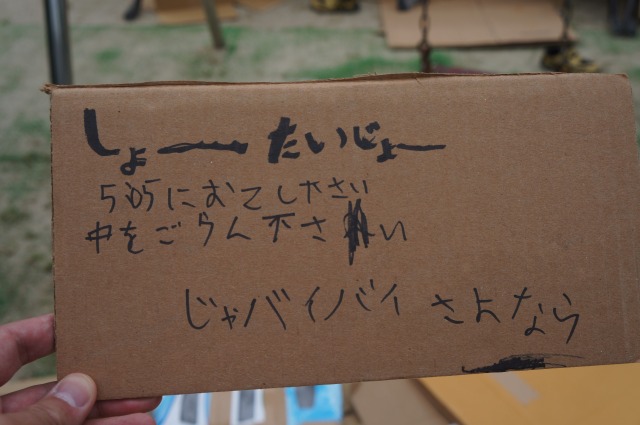 しょーたいじょー
うらにおてし下さい
中をごらん下さい
じゃバイバイ さよなら